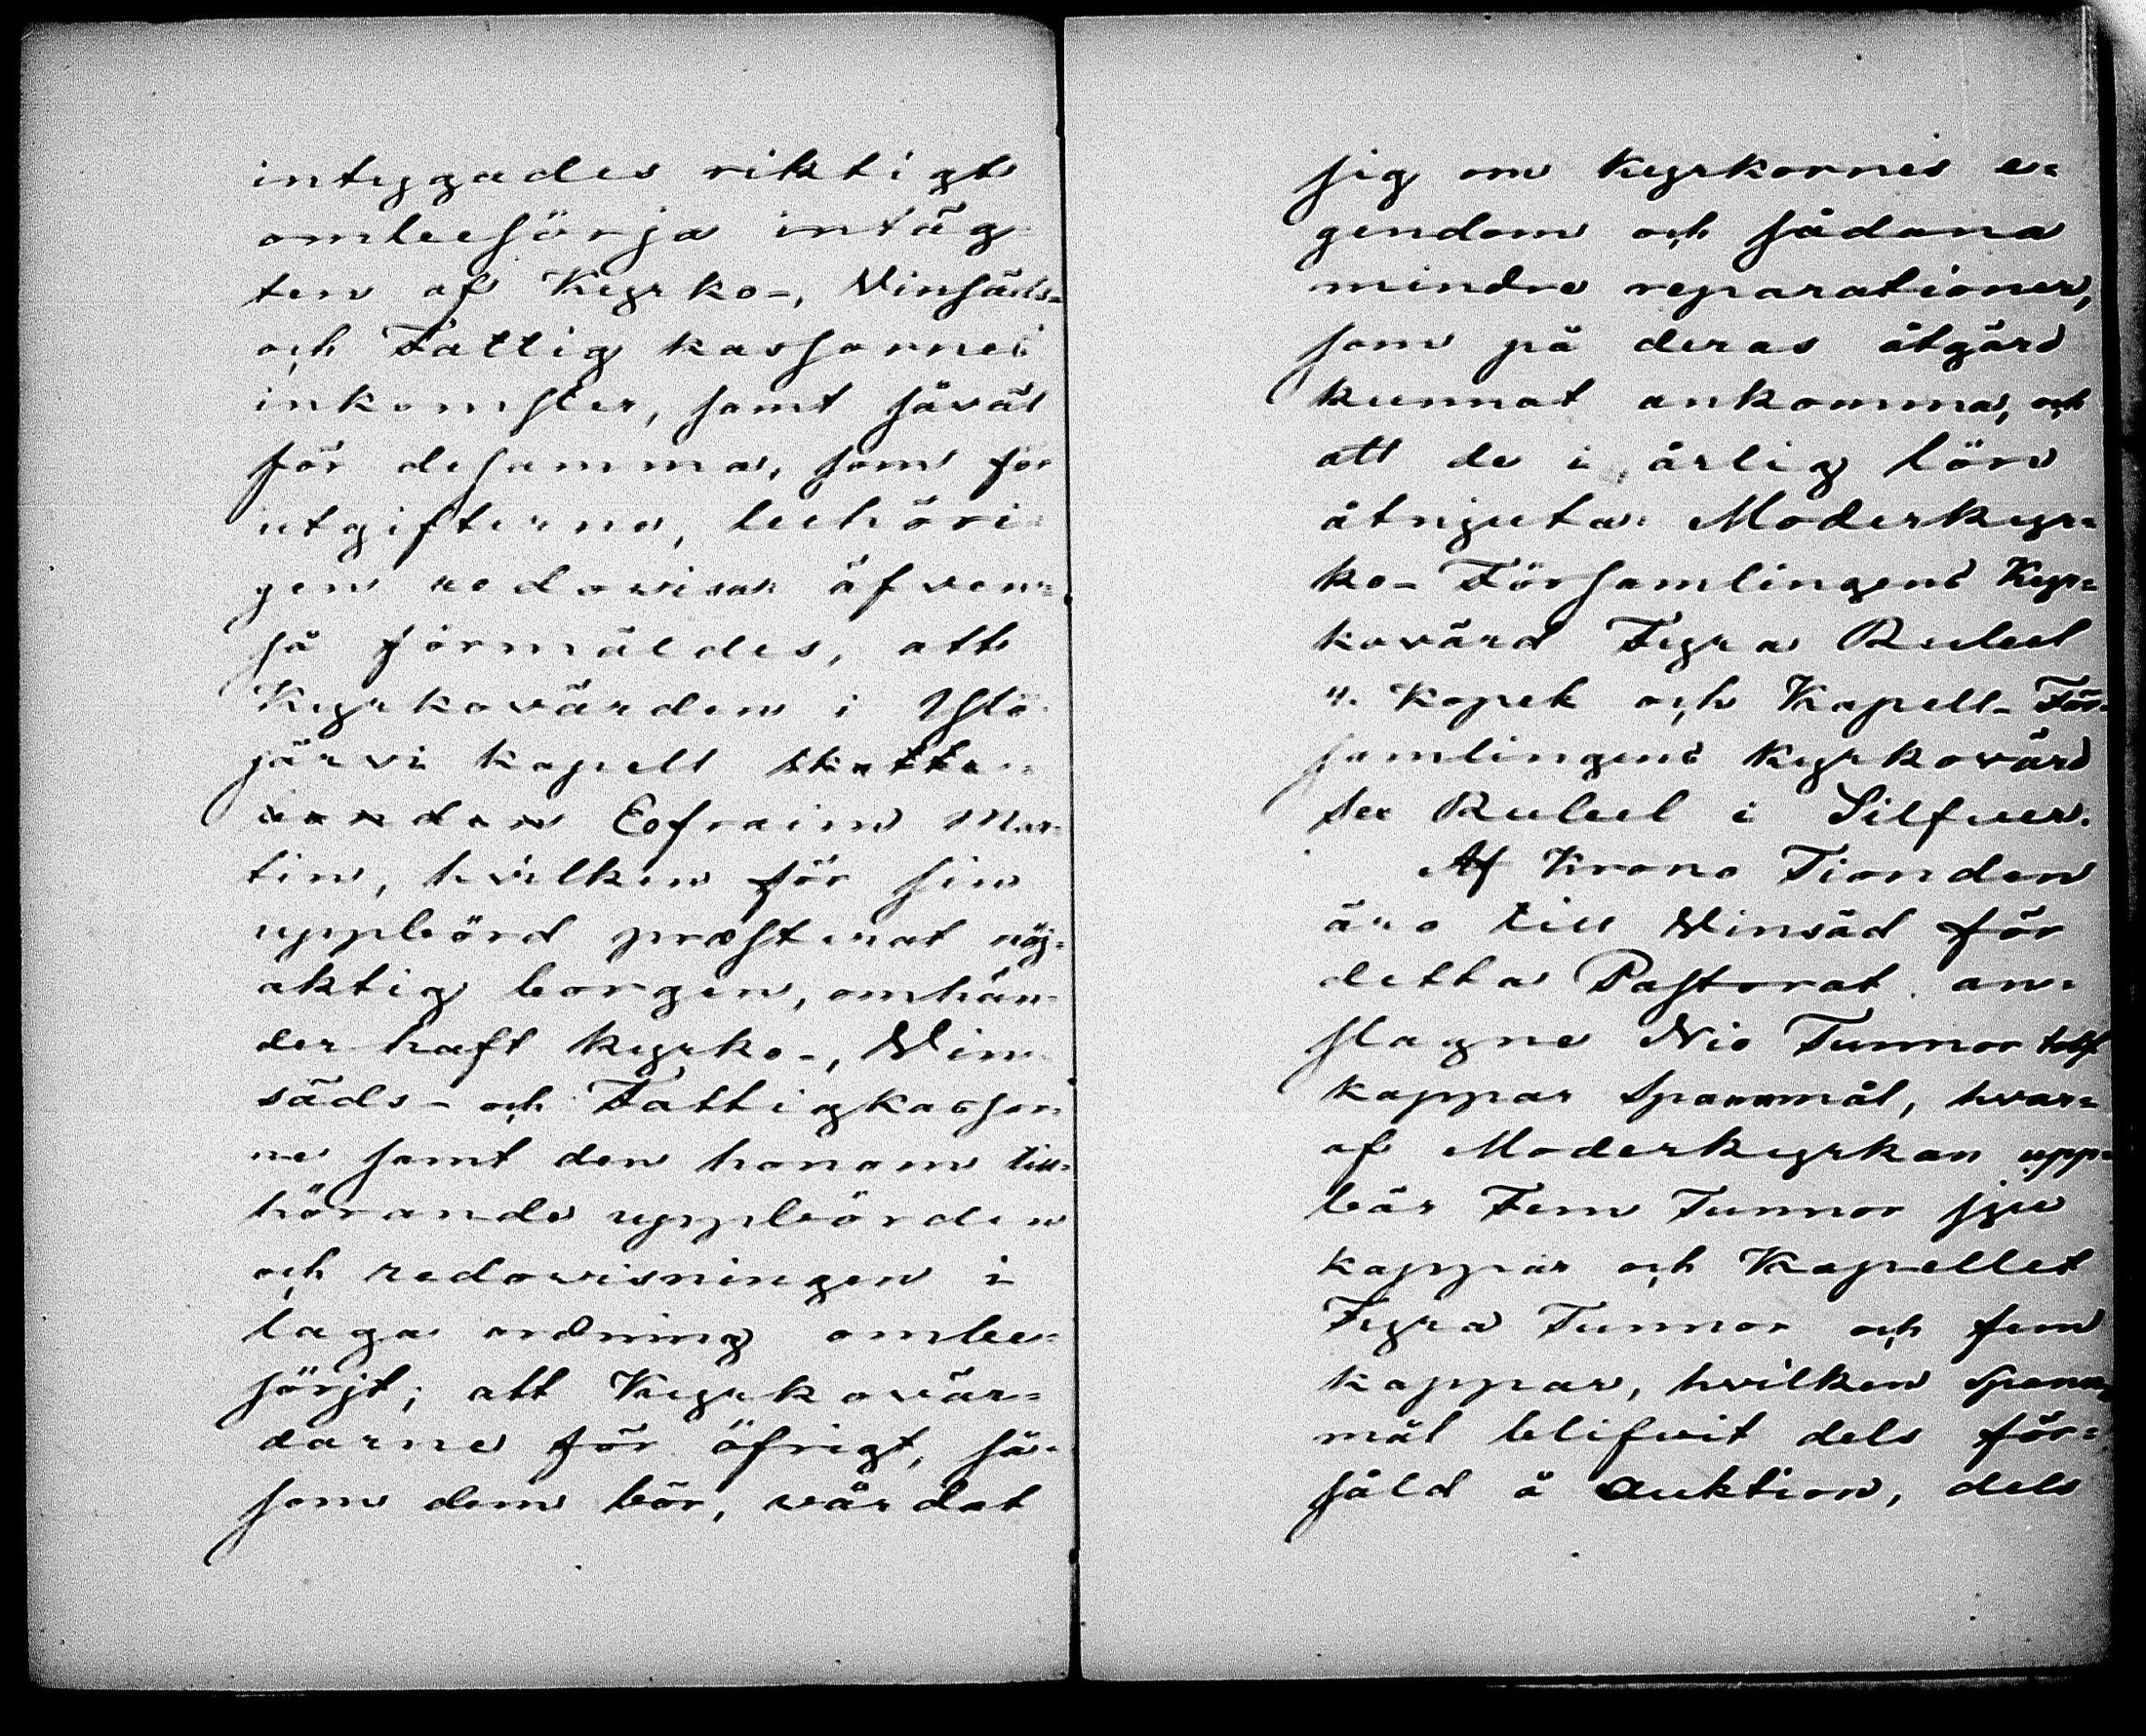 intyggades riktigt
ombesörja intäg
ten af Kyrko-, Vinsäds-
och Fattig kassornes
inkomster, samt såväl
för desamma, som för
utgifterna, behöri-
gen redovisa: äfven-
så förmäldes, att
Kyrkovärden i Ylö-
järvi kapell skatte-
bonden Eefraim Mar-
tin, hvilken för sin
uppbörd præsterat nöj-
aktig borgen, omhän-
der haft kyrko-, Vin-
säds- och Fattigkassor-
ne samt den honom till-
hörande uppbörden
och redovisningen i
laga ordning ombe-
sörjt; att Kyrkovär-
darne för öfrigt, så-
som dem bör, vårdat
sig om kyrkornes e-
gendom och sådana
mindre reparationer,
som på deras åtgärd
kunnat ankomma, och
att de i årlig lön
åtnjuta: Moderkyr-
ko-Församlingens Kyr-
kovärd Fyra Rubel
4. kopek och Kapell-För-
samlingens kyrkovärd
sex Rubel i Silfver.
Af Krono Tionden
äro till Vinsäd för
detta Pastorat an-
slagne Nio Tunnor tolf
kappar Spannmål, hvar-
af Moderkyrkan upp-
bär Fem Tunnor sju
kappar och Kapellet
Fyra Tunnor och fem
kappar, hvilken Spann-
mål blifvit dels för-
såld å auktion, dels